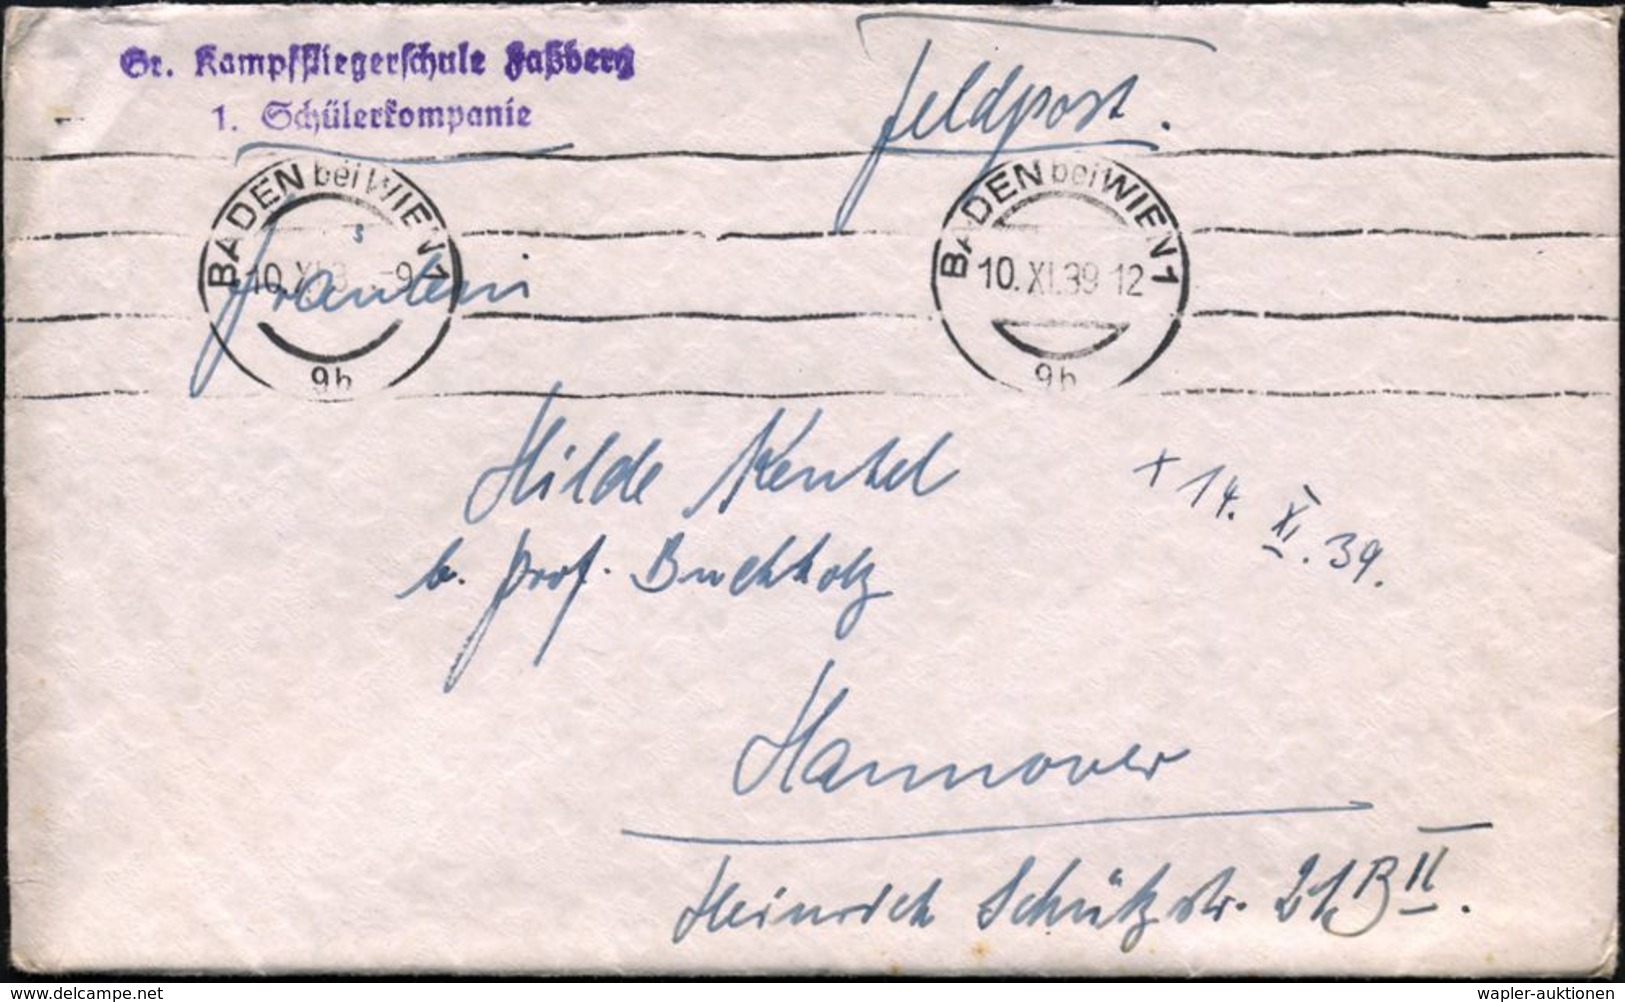 Gr. Kampffliegerschule Faßberg
1. Schülerkompanie
Feldpost.
BADEN bei WIEN 1
10. XI. 3 -9
9b
BADEN bei WIEN 1
10. XI.39 12
9b
Fräulein
Hilde Kentel
b. Prof. Buchholz
+ 14. XI. 39.
Hannover
Heinrich Schützstr. 21, B II.
© www.delcampe.net
wapler-auktionen